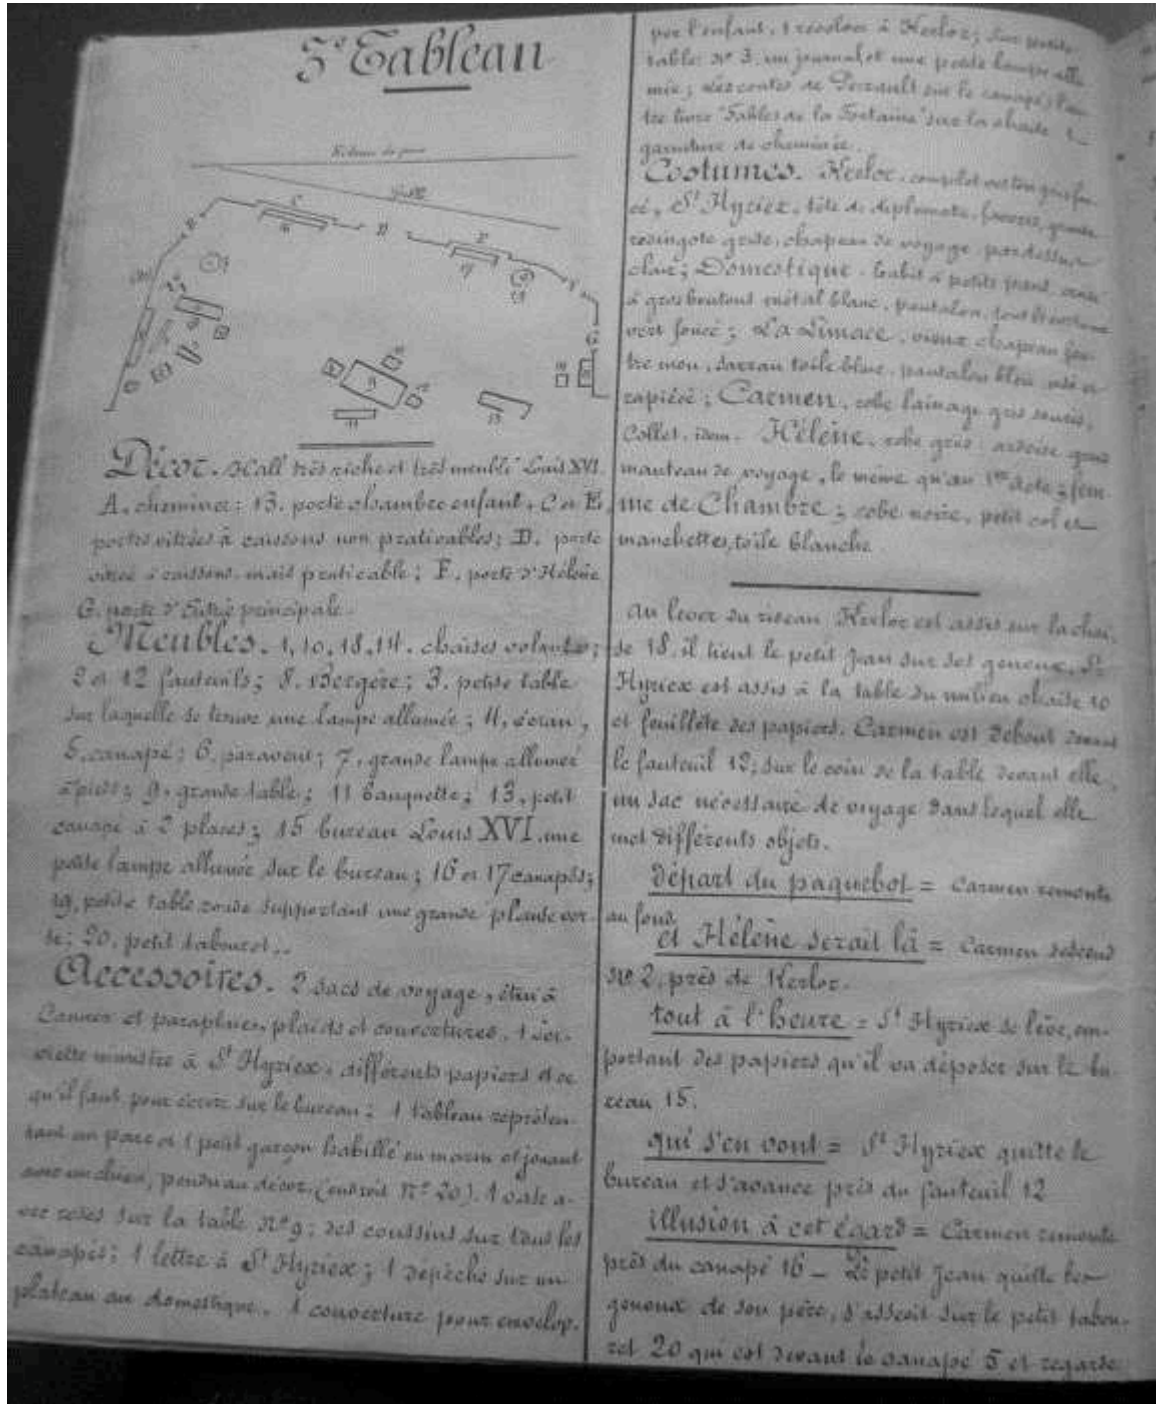 5e Tableau
Rideau de fond
Décor. Hall très riche et très meublé Louis XVI.
A, cheminée; B, porte chambre enfant, C et E,
portes vitrées à caissons non praticables; D. porte
vitrée à caissons mais praticable; F. porte d'Hélène
G. porte d'Entrée principale.
Meubles. 1, 10, 18, 14. chaises volantes;
2 et 12 fauteuils; 8. Bergère; 3. petite table
sur laquelle se trouve une lampe allumée; 4, écran,
5. canapé; 6. paravent; 7. grande lampe allumée
à pied; 9. grande table; 11 banquette; 13. petit
canapé à 2 places; 15 bureau Louis XVI. une
petite lampe allumée sur le bureau; 16 et 17 canapés;
19. petite table ronde supportant une grande plante ver-
te; 20. petit tabouret..
Accessoires. 2 sacs de voyage, étui à
Cannes et parapluies, plaids et couvertures. 1 ser-
viette ministre à St Hyriex, différents papiers et ce
qu'il faut pour écrire sur le bureau; 1 tableau représen-
tant un parc et 1 petit garçon habillé en marin et jouant
avec un chien, pendu au décor, (endroit No 20). 1 vase a-
vec roses sur la table No 9; des coussins sur tous les
canapés; 1 lettre à St Hyriex; 1 dépêche sur un
plateau au domestique. 1 couverture pour envelop-
per l'enfant, 1 révolver à Kerlor; sur petite
table No 3, un journal et une petite lampe allu-
mée; Les contes de Perrault sur le canapé; l'au-
tre livre "Fables de la Fontaine" sur la chaise 1
garniture de cheminée.
Costumes. Kerlor, complet veston gris fon-
cé, St Hyriex, tête de diplomate, favoris, grande
redingote grise, chapeau de voyage, pardessus
clair; Domestique. habit à petits pans,
à gros boutons métal blanc, pantalon, tout
vert foncé; La Limace, vieux chapeau feu-
tre mou, sarrau toile bleue, pantalon bleu usé et
rapiécé; Carmen, robe lainage gris souris,
Collet, idem. Hélène, robe gris ardoise grand
manteau de voyage, le même qu'au 1er acte; fem-
me de Chambre; robe noire, petit col et
manchettes, toile blanche.
Au lever du rideau Kerlor est assis sur la chai-
se 18. il tient le petit Jean sur ses genoux. St
Hyriex est assis à la table du milieu chaise 10
et feuillète des papiers. Carmen est debout devant
le fauteuil 12; sur le coin de la table devant elle,
un sac nécessaire de voyage dans lequel elle
met différents objets.
départ du paquebot = Carmen remonte
au fond
et Hélène serait là = Carmen descend
No 2, près de Kerlor.
tout à l'heure = St Hyriex se lève, em-
portant des papiers qu'il va déposer sur le bu-
reau 15.
qui s'en vont = St Hyriex quitte le
bureau et s'avance près du fauteuil 12
illusion à cet égard = Carmen remonte
près du canapé 16 — Le petit Jean quitte les
genoux de son père, s'asseoit sur le petit tabou-
ret 20 qui est devant le canapé 5 et regarde